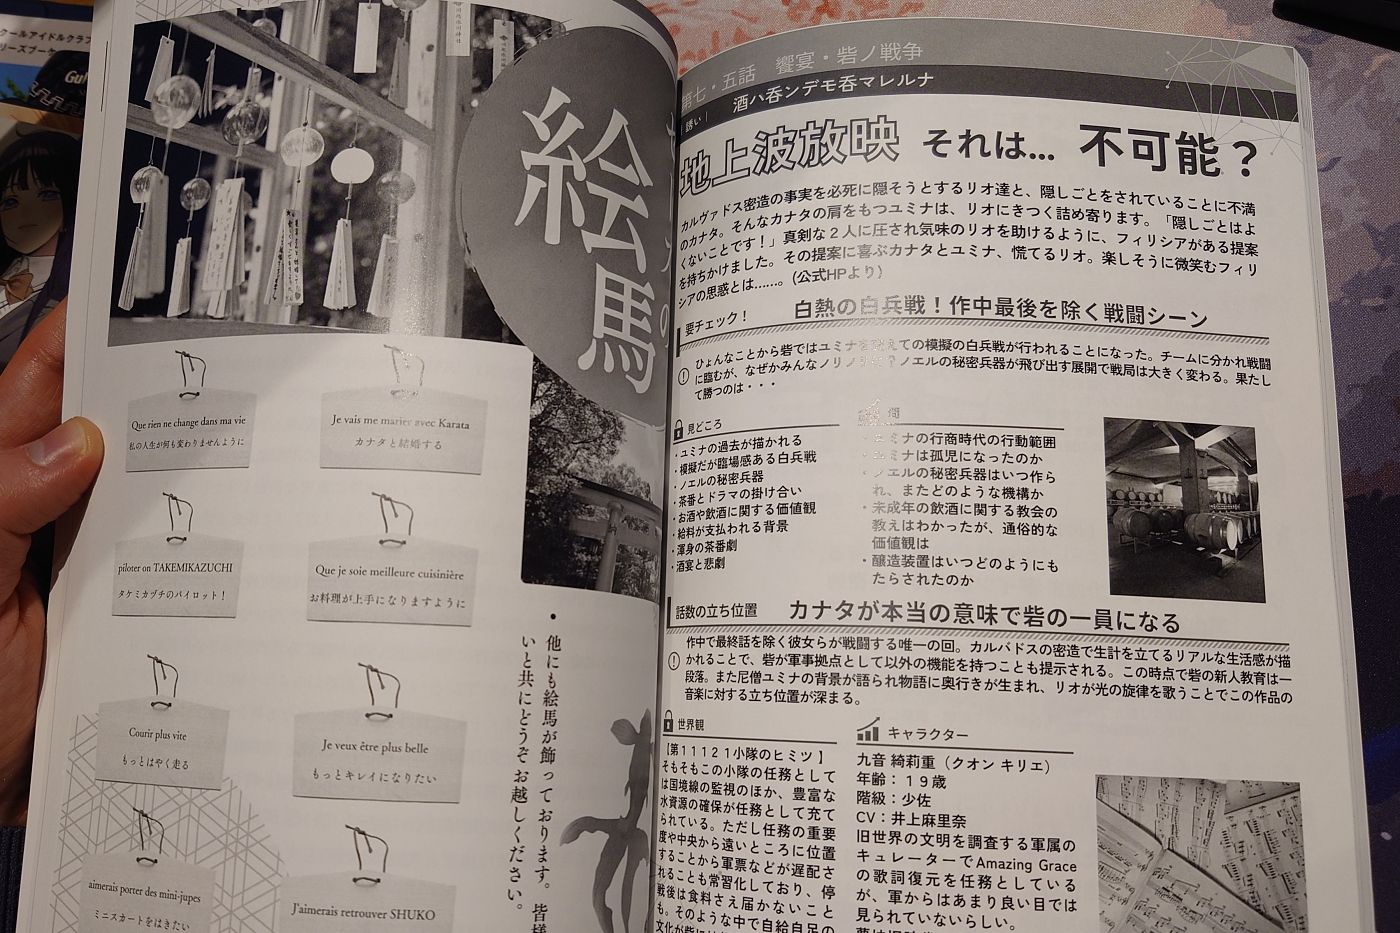 クールアイドルクラブ
絵馬
Que rien ne change dans ma vie
私の人生が何も変わりませんように
Je vais me marier avec Karata
カナタと結婚する
piloter on TAKEMIKAZUCHI
タケミカヅチのパイロット!
Que je soie meilleure cuisinière
お料理が上手になりますように
Courir plus vite
もっとはやく走る
Je veux être plus belle
もっとキレイになりたい
aimerais porter des mini-jupes
ミニスカートをはきたい
J'aimerais retrouver SHUKO
・他にも絵馬が飾っております。皆様
いと共にどうぞお越しください。
第七・五話 饗宴・砦ノ戦争
誘い 酒ハ呑ンデモ呑マレルナ
地上波放映 それは… 不可能?
カルヴァドス密造の事実を必死に隠そうとするリオ達と、隠しごとをされていることに不満
のカナタ。そんなカナタの肩をもつユミナは、リオにきつく詰め寄ります。「隠しごとはよ
くないことです!」真剣な2人に圧され気味のリオを助けるように、フィリシアがある提案
を持ちかけました。その提案に喜ぶカナタとユミナ、慌てるリオ。楽しそうに微笑むフィリ
シアの思惑とは……。(公式HPより)
要チェック! 白熱の白兵戦!作中最後を除く戦闘シーン
ひょんなことから砦ではユミナを えての模擬の白兵戦が行われることになった。チームに分かれ戦闘
に臨むが、なぜかみんなノリノリ ?ノエルの秘密兵器が飛び出す展開で戦局は大きく変わる。果たし
て勝つのは・・・
見どころ
・ユミナの過去が描かれる
・模擬だが臨場感ある白兵戦
・ノエルの秘密兵器
・茶番とドラマの掛け合い
・お酒や飲酒に関する価値観
・給料が支払われる背景
・渾身の茶番劇
・酒宴と悲劇
ミナの行商時代の行動範囲
ミナは孤児になったのか
・ノエルの秘密兵器はいつ作ら
れ、またどのような機構か
・未成年の飲酒に関する教会の
教えはわかったが、通俗的な
価値観は
・醸造装置はいつどのようにも
たらされたのか
話数の立ち位置 カナタが本当の意味で砦の一員になる
作中で最終話を除く彼女らが戦闘する唯一の回。カルバドスの密造で生計を立てるリアルな生活感が描
かれることで、砦が軍事拠点として以外の機能を持つことも提示される。この時点で砦の新人教育は一
段落。また尼僧ユミナの背景が語られ物語に奥行きが生まれ、リオが光の旋律を歌うことでこの作品の
音楽に対する立ち位置が深まる。
世界観
【第11121小隊のヒミツ】
そもそもこの小隊の任務として
は国境線の監視のほか、豊富な
水資源の確保が任務として充て
られている。ただし任務の重要
度や中央から遠いところに位置
することから軍票などが遅配さ
れることも常習化しており、停
戦後は食料さえ届かないこと
も。そのような中で自給自足の
キャラクター
九音 綺莉重(クオン キリエ)
年齢:19歳
階級:少佐
CV:井上麻里奈
旧世界の文明を調査する軍属の
キュレーターでAmazing Grace
の歌詞復元を任務としている
が、軍からはあまり良い目では
見られていないらしい。